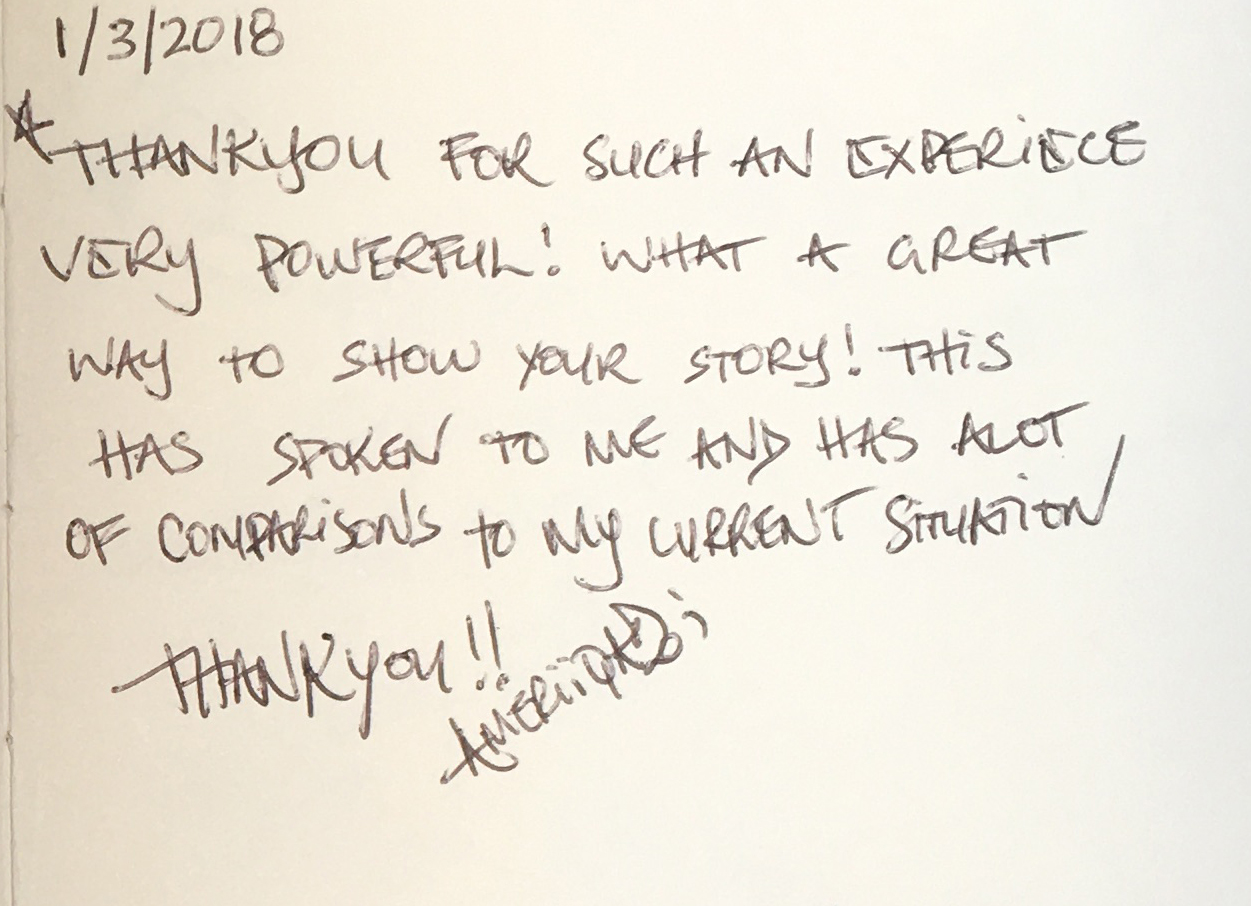 1/3/2018
*THANKYOU FOR SUCH AN EXPERIECE
VERY POWERFUL! WHAT A GREAT
WAY TO SHOW YOUR STORY! THiS
HAS SPOKEN TO ME AND HAS ALOT
OF COMPARiSONS to My CURRENT SiTUATiON
THANKyou!!